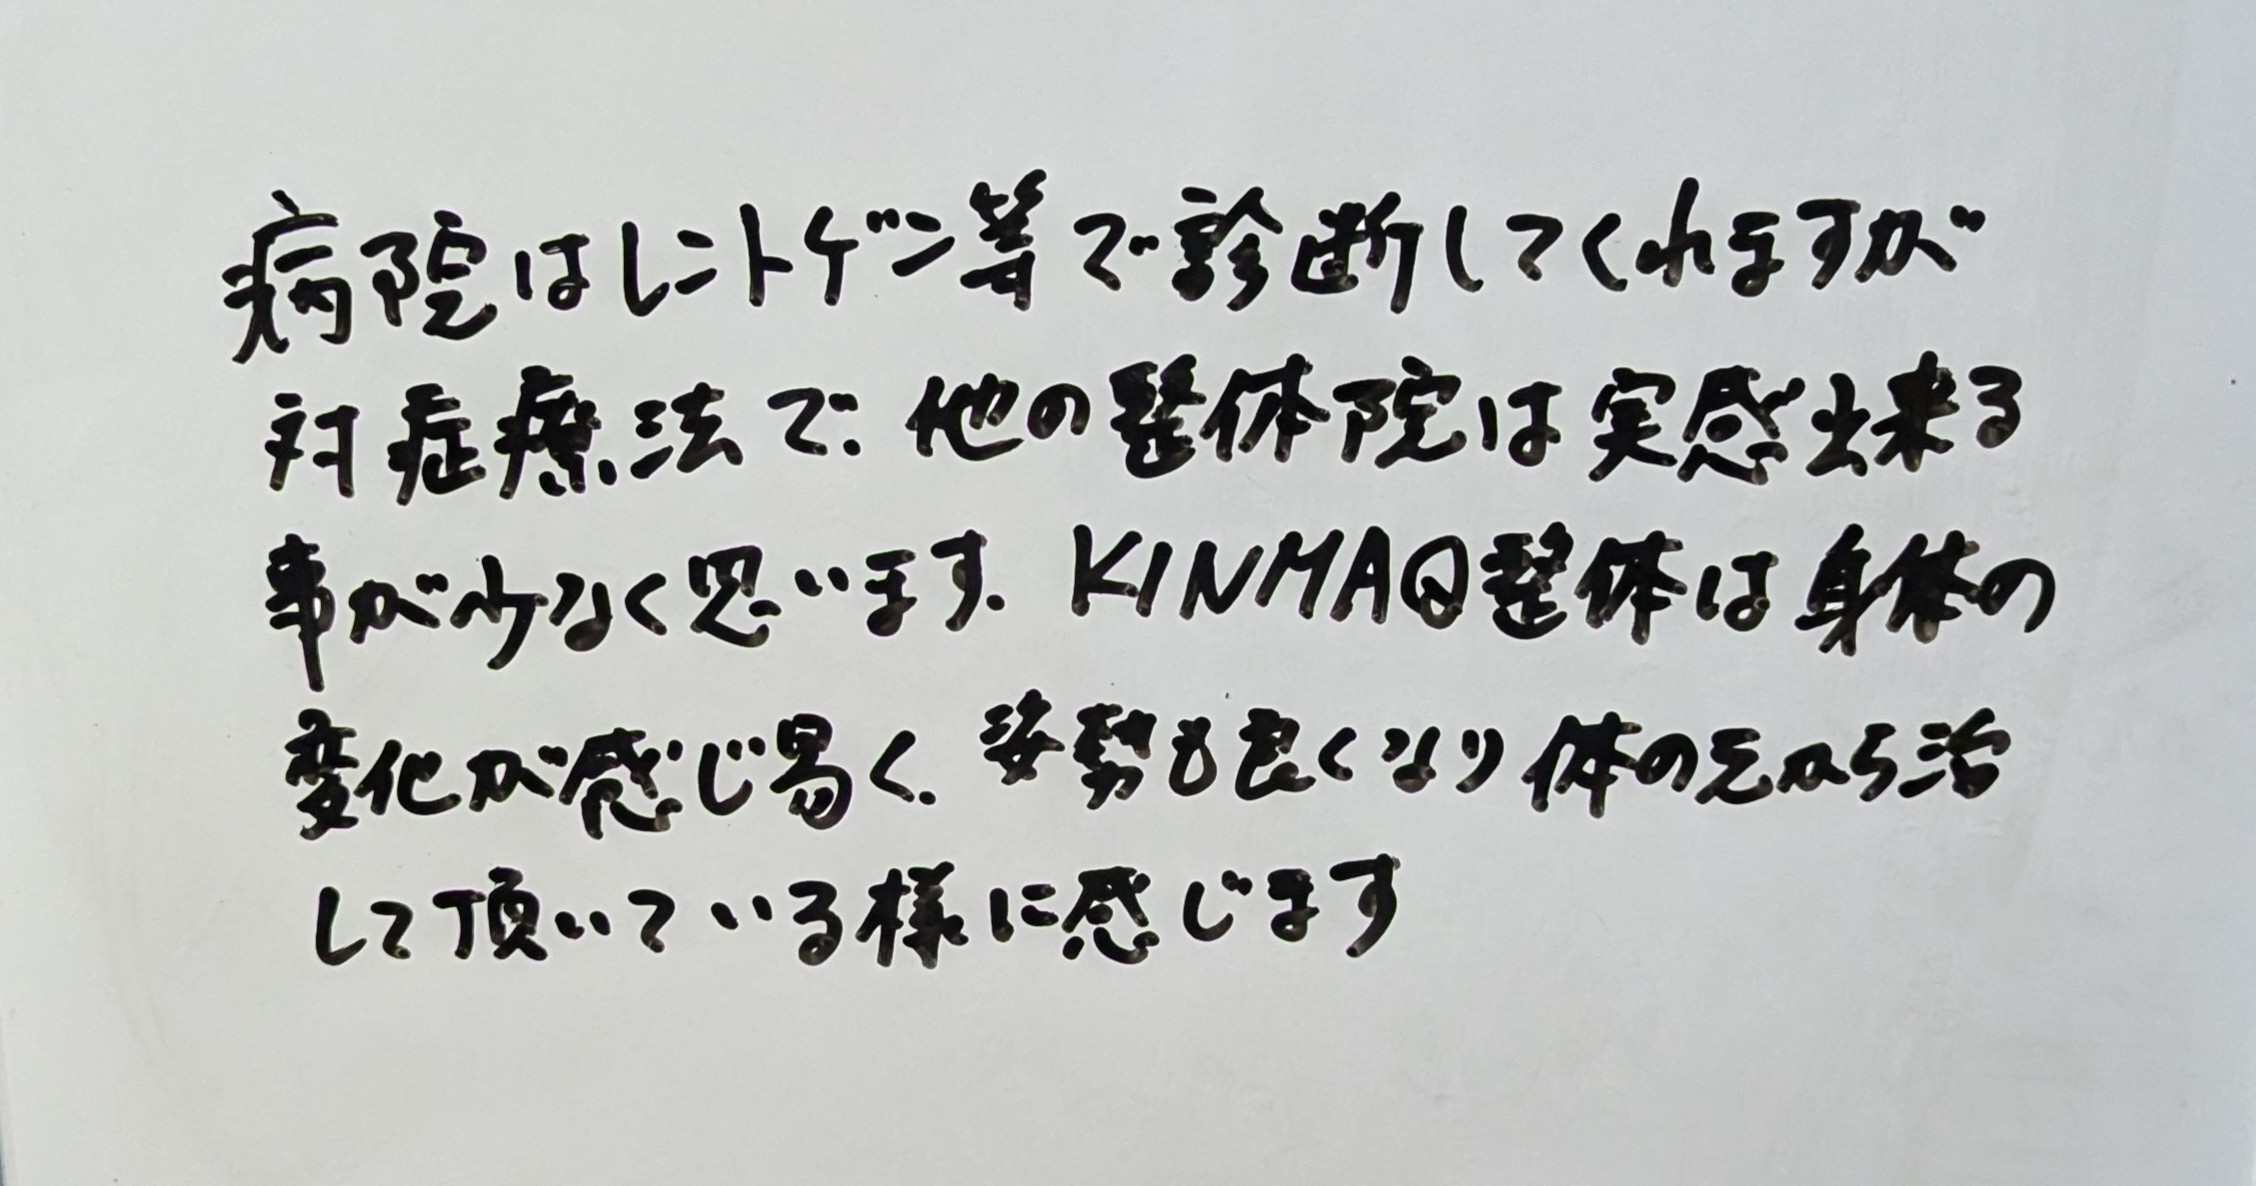 病院はレントゲン等で診断してくれますが
対症療法で、他の整体院は実感出来る
事が少なく思います。KINMAQ整体は身体の
変化が感じ易く、姿勢も良くなり体の元から治
して頂いている様に感じます